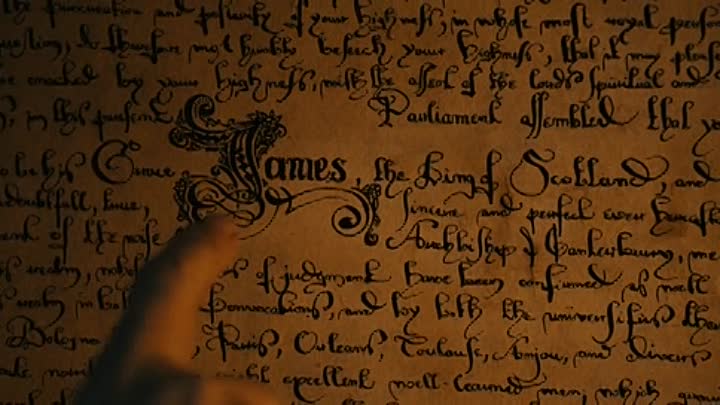 the procreation and posterity of your highness, in whose most royal
do therfore most humbly beseech your highness, that it may
enacted by your highness, with the assent of the lords spiritual and
in this present Parliament assembled that
to be his Grace James, the King of Scotland, and
doubtfull, true, sincere and perfect ever
of the Archbishop of Canterbury,
realm, of judgment have been confirmed as well
realm in Convocations, and by both the universities
Bologne, Paris, Orleans, Toulouse, Anjou, and divers
excellent well-learned men, which